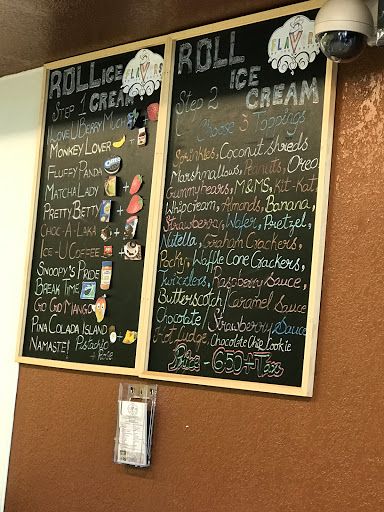 ROLL ICE
CREAM
Step 1
I LOVE U BERRY MUCH
MONKEY LOVER
FLUFFY PANDA
MATCHA LADY
PRETTY BETTY +
CHOC-A-LAKA +
ICE-U COFFEE +
SNOOPY'S PRIDE
BREAK TIME
GO GO MANGO
PINA COLADA ISLAND
NAMASTE! Pistachio
+ Rose
FLAVORS
ROLL
ICE
CREAM
Step 2
Choose 3 Toppings
Sprinkles, Coconut shreds
Marshmallows, Peanuts, Oreo
Gummybears, M&MS, Kit-Kat
Whipcream, Almonds, Banana,
Strawberry, Wafer, Pretzel,
Nutella, Graham Crackers,
Pocky, Waffle Cone Crackers,
Twizzlers, Raspberry Sauce,
Butterscotch/Caramel Sauce
Chocolate/Strawberry Sauce
Hot fudge, Chocolate Chip Cookie
Price - 6.50+Tax
FLAVORS